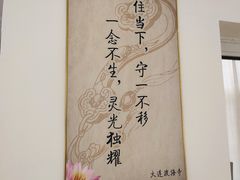 住当下，守一不移
一念不生，灵光独耀
大连观海寺